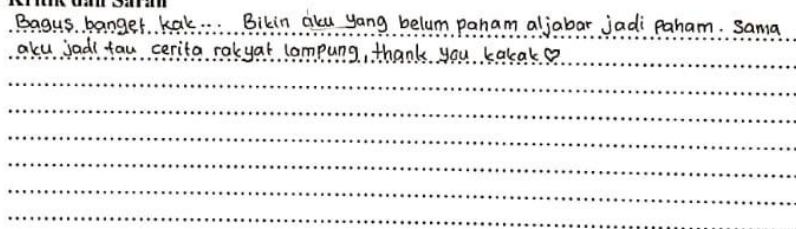 Kritik dan Saran
Bagus banget kak... Bikin aku yang belum paham aljabar jadi paham. Sama
aku jadi tau cerita rakyat lampung, thank you kakak ♡